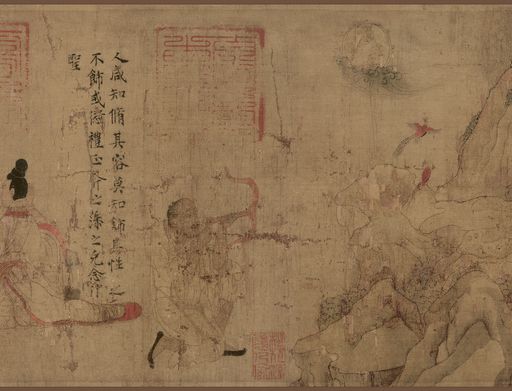 人咸知脩其容莫知飾其性之
不飾或愆禮正斧之藻之克念作
聖